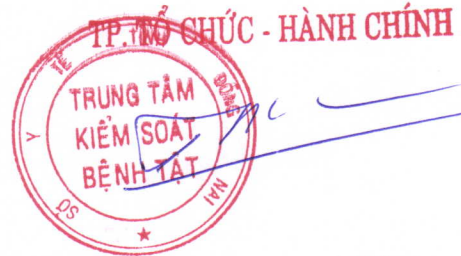 TP. TỔ CHỨC - HÀNH CHÍNH
SỞ Y TẾ
ĐỒNG NAI
TRUNG TÂM
KIỂM SOÁT
BỆNH TẬT